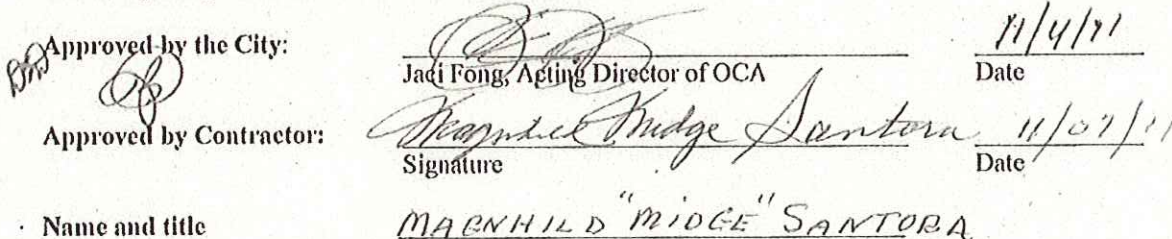 Approved by the City: 11/4/11
Jaci Fong, Acting Director of OCA Date
Approved by Contractor: Magnhild Midge Santora 11/07/11
Signature Date
Name and title MAGNHILD "MIDGE" SANTORA